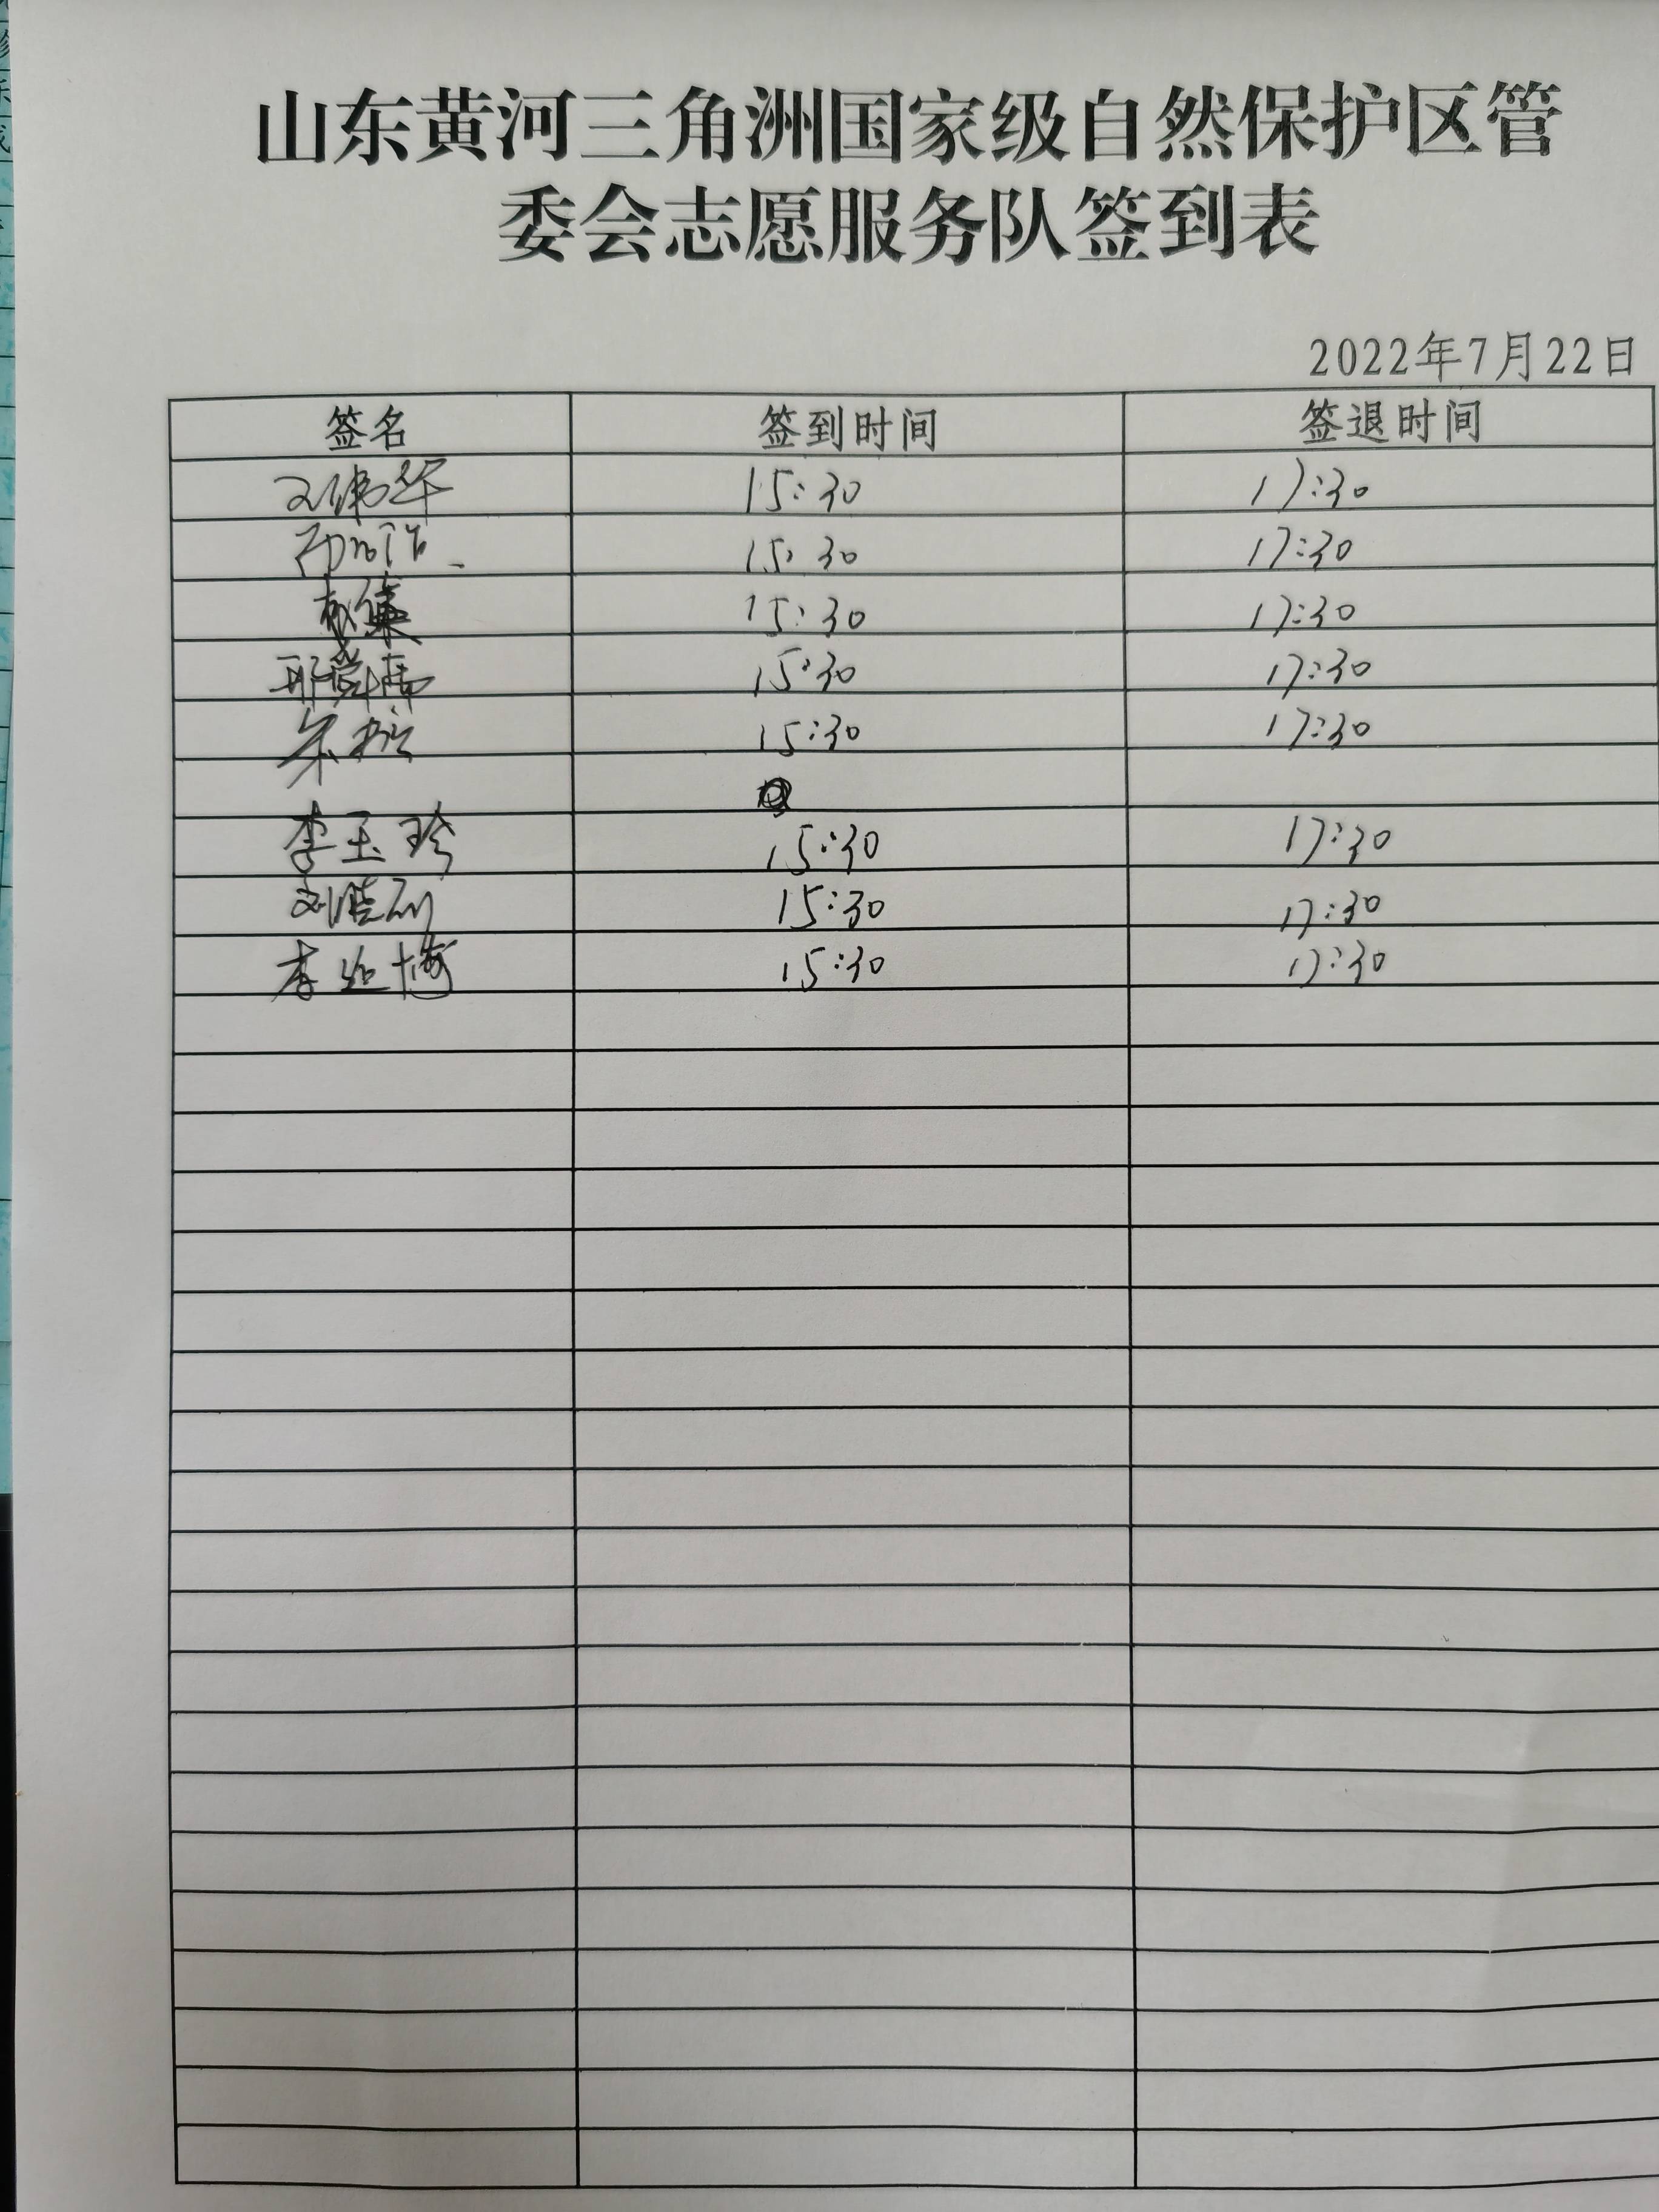 山东黄河三角洲国家级自然保护区管
委会志愿服务队签到表
2022年7月22日
签名 签到时间 签退时间
15:30 17:30
15:30 17:30
15:30 17:30
15:30 17:30
朱 15:30 17:30
李玉珍 15:30 17:30
刘浩 15:30 17:30
李 博 15:30 17:30